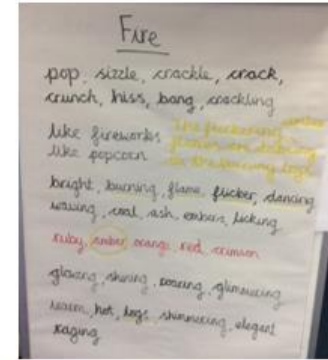 Fire
pop, sizzle, crackle, crack,
crunch, hiss, bang, crackling
like fireworks the flickering
like popcorn flames are dancing
on the burning logs
bright, burning, flame, flicker, dancing
waving, coal, ash, embers, licking
ruby, amber, orange, red, crimson
glowing, shining, roaring, glimmering
warm, hot, logs, shimmering, elegant
raging